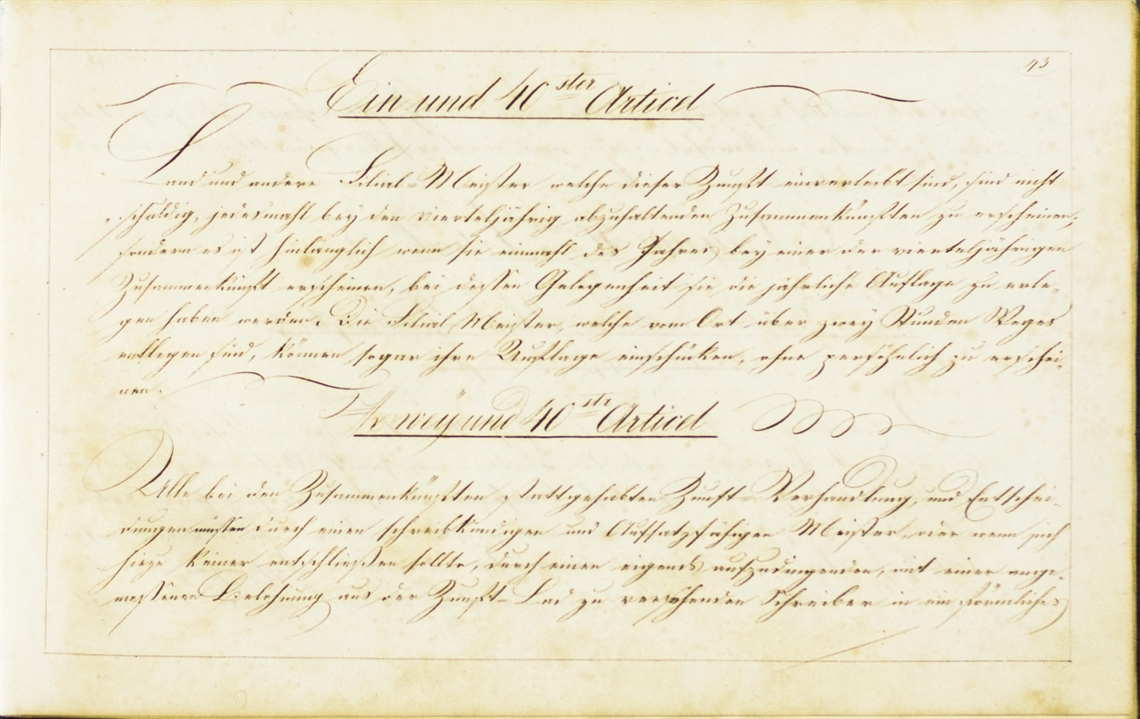 43
Ein und 40ster Articel
Land und andere Filial-Meister welche dieser Zunft einverleibt sind, sind nicht
schuldig, jedesmahl bey den vierteljährig abzuhaltenden Zusammenkünften zu erscheinen,
sondern es ist hinlänglich wenn sie einmahl des Jahres bey einer der vierteljährigen
Zusammenkunft erscheinen, bei dessen Gelegenheit sie die jährliche Auflage zu erle-
gen haben werden. Die Filial Meister, welche vom Ort über zwey Stunden Weges
entlegen sind, können sogar ihre Auflage einschicken, ohne persöhnlich zu erschei-
nen.
Zweÿ und 40str Articel
Alle bei den Zusammenkünften stattgehabten Zunft-Verhandlung, und Entschei-
dungen müssen durch einen schreibkündigen und Aufsatzfähigen Meister, oder wenn sich
hiezu keiner entschließen sollte, durch einen eigends aufzudingenden, mit einer ange-
messenen Belohnung aus der Zunft-Lad zu versehenden Schreiber in ein förmliches